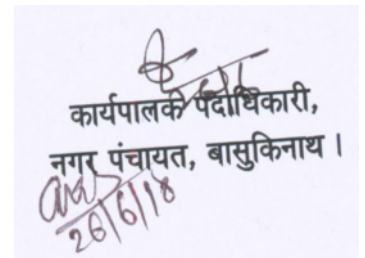 कार्यपालक पदाधिकारी,
नगर पंचायत, बासुकिनाथ ।
26/6/18